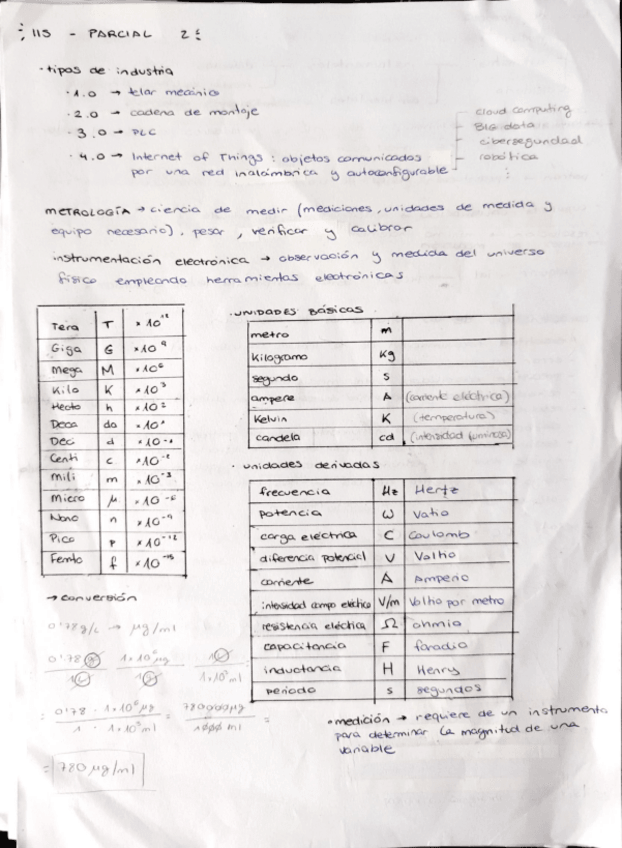 115 - PARCIAL 2
· tipos de industria
· 1.0 → telar mecánico
· 2.0 → cadena de montaje
· 3.0 → PLC
· 4.0 → Internet of Things: objetos comunicados
por una red inalámbrica y autoconfigurable
cloud computing
BIG data
ciberseguridad
robótica
⋮
METROLOGÍA → ciencia de medir (mediciones, unidades de medida y
equipo necesario), pesar, verificar y calibrar
instrumentación electrónica → observación y medida del universo
físico empleando herramientas electrónicas
Tera T × 10¹²
Giga G × 10⁹
Mega M × 10⁶
Kilo K × 10³
Hecto h × 10²
Deca da × 10¹
Deci d × 10⁻¹
Centi c × 10⁻²
Mili m × 10⁻³
Micro μ × 10⁻⁶
Nano n × 10⁻⁹
Pico p × 10⁻¹²
Femto f × 10⁻¹⁵
· UNIDADES BÁSICAS
metro m
Kilogramo Kg
segundo s
ampere A (corriente eléctrica)
Kelvin K (temperatura)
candela cd (intensidad luminosa)
· unidades derivadas
frecuencia Hz Hertz
potencia W Vatio
carga eléctrica C Coulomb
diferencia potencial V Voltio
corriente A Amperio
intensidad campo eléctrico V/m Voltio por metro
resistencia eléctrica Ω ohmio
capacitancia F faradio
inductancia H Henry
periodo s segundos
→ conversión
0'78 g/L → μg/ml
0'78 g 1x10⁶ μg 1L
1L 1g 1x10³ ml
= 0'78 · 1x10⁶ μg = 780000 μg =
1 · 1x10³ ml 1000 ml
= 780 μg/ml
• medición → requiere de un instrumento
para determinar la magnitud de una
variable